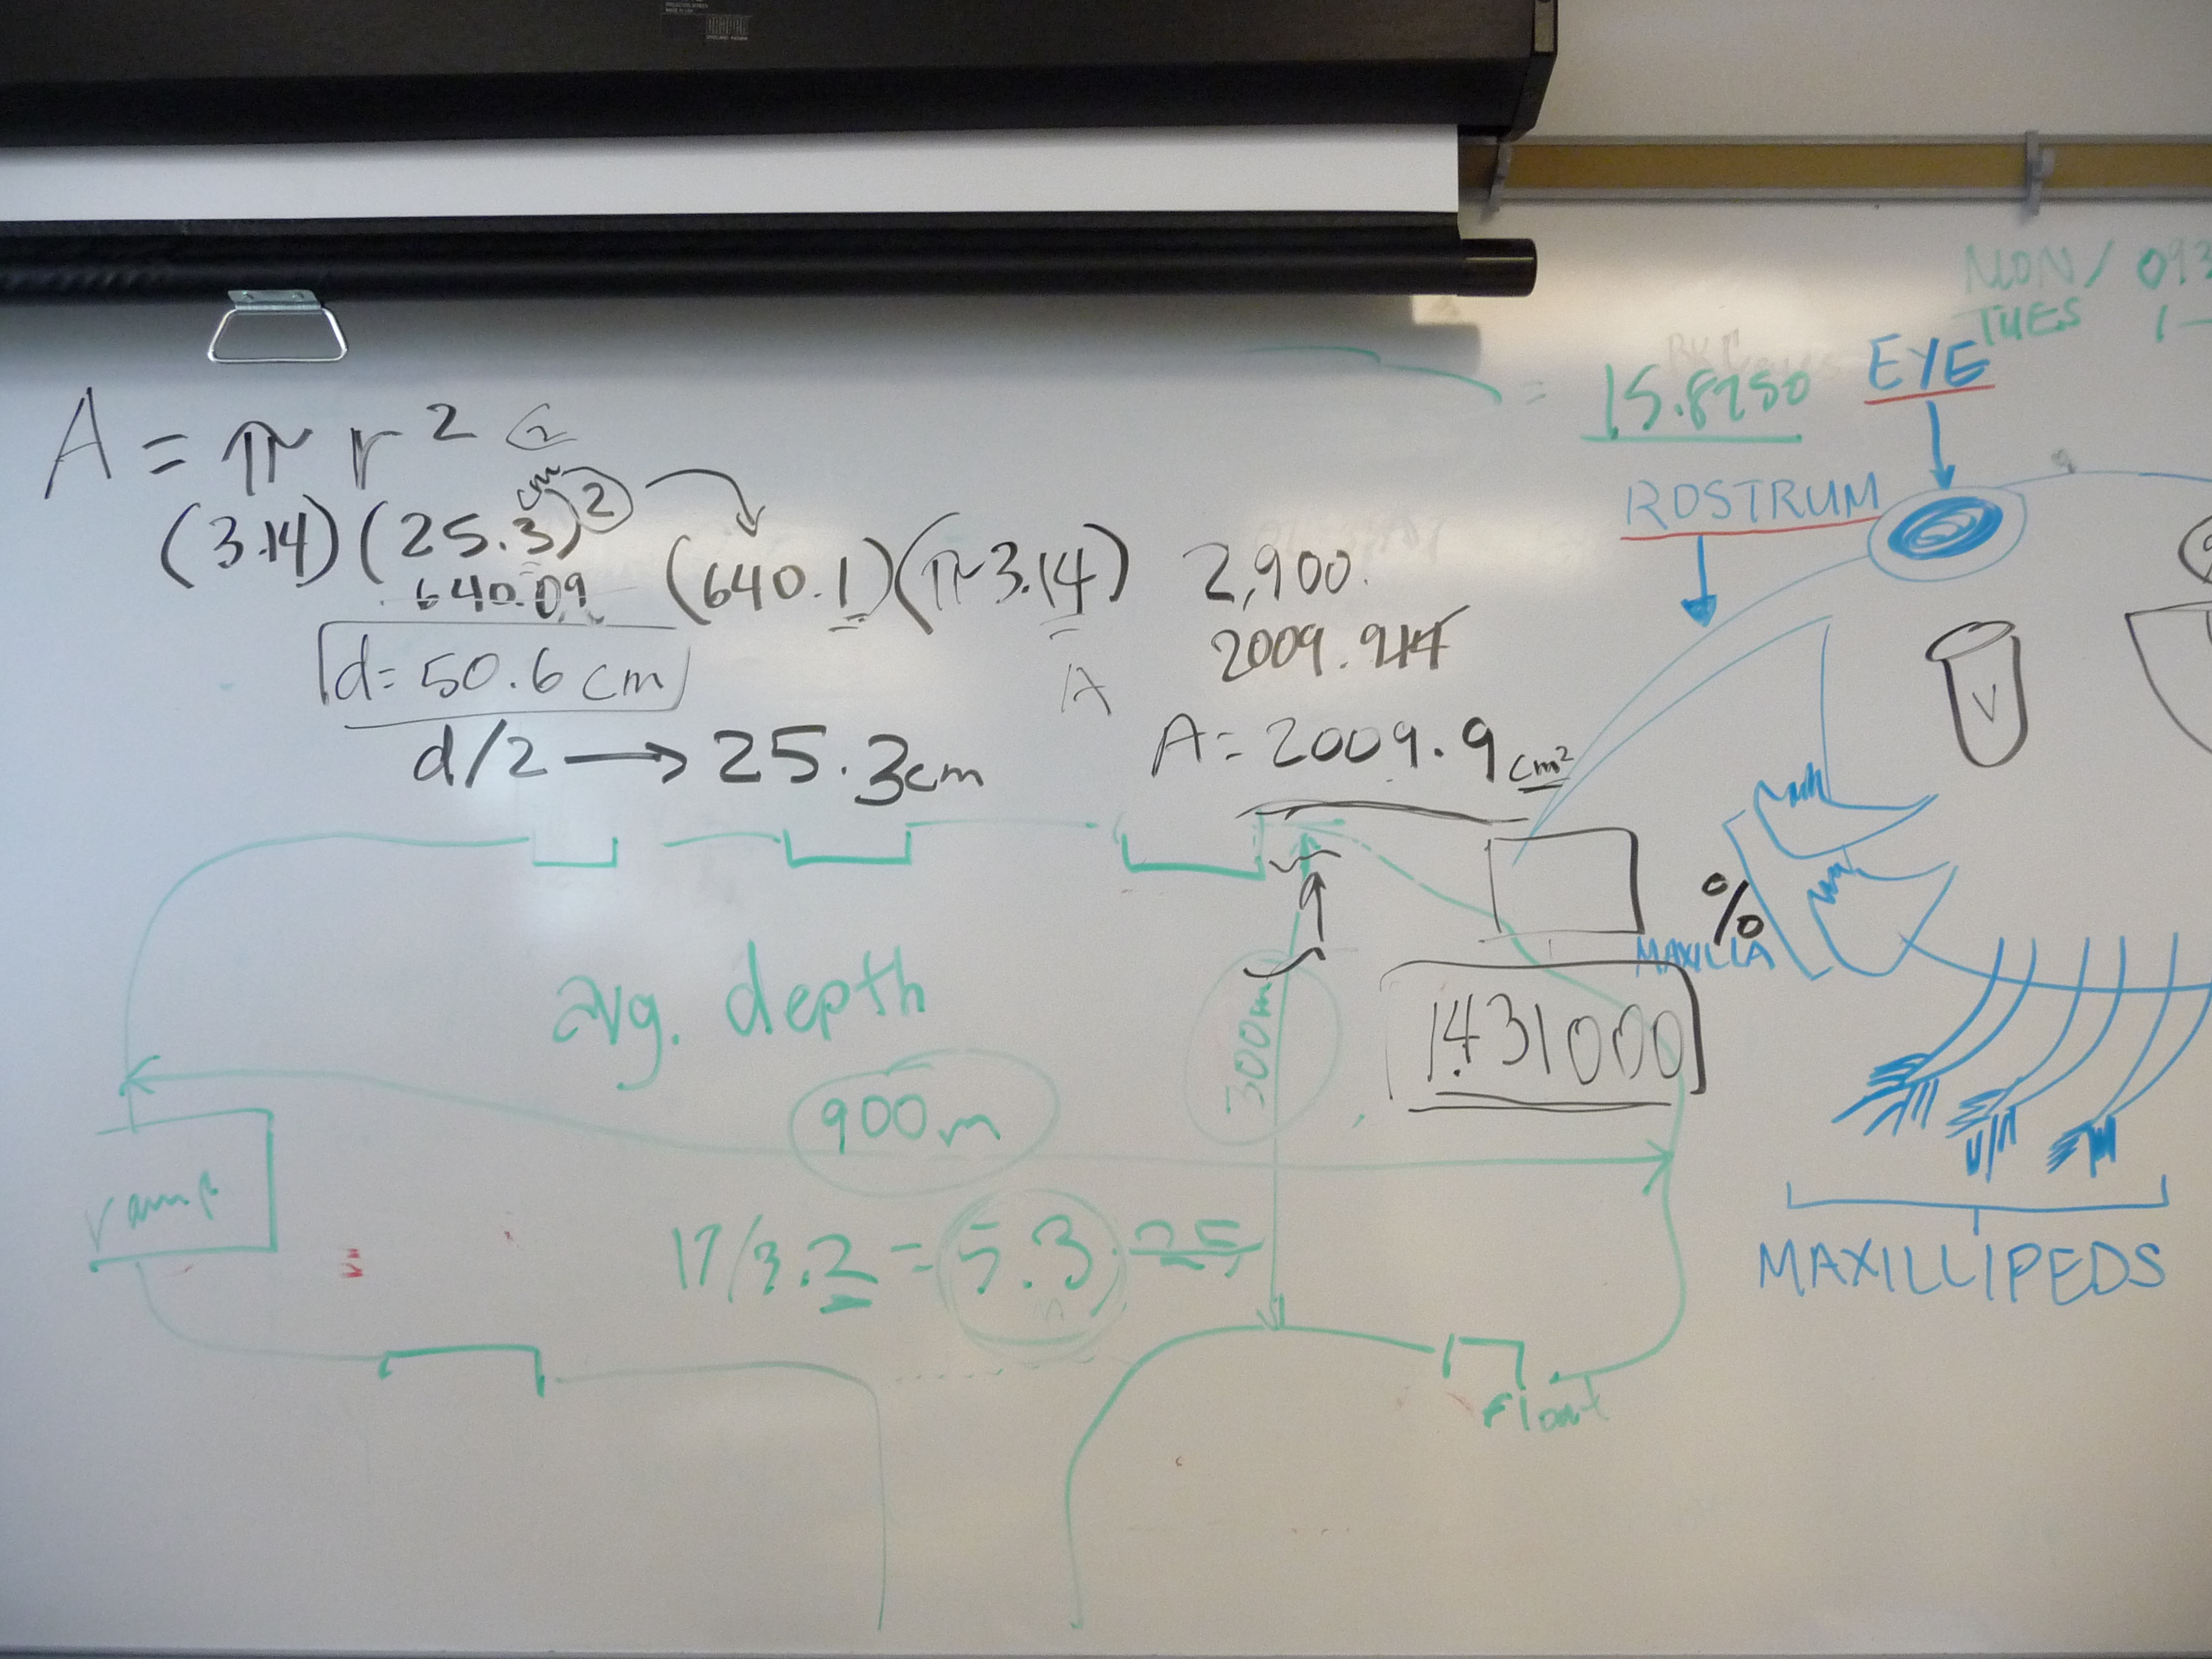 A = π r²
(3.14)(25.3 cm)²
640.09
(640.1)(π 3.14)
2,900.
2009.914
d= 50.6 cm
d/2 → 25.3cm
A
A = 2009.9 cm²
= 15.8250
MON/ 093
TUES 1-
EYE
ROSTRUM
V
%
MAXILLA
avg. depth
300m
1.431000
900m
ramp
17/3.2 = 5.3 .25
MAXILLIPEDS
float